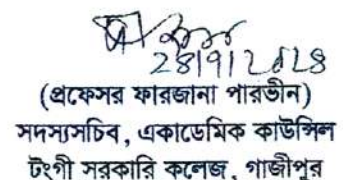 28/9/2028
(প্রফেসর ফারজানা পারভীন)
সদস্যসচিব, একাডেমিক কাউন্সিল
টংগী সরকারি কলেজ, গাজীপুর